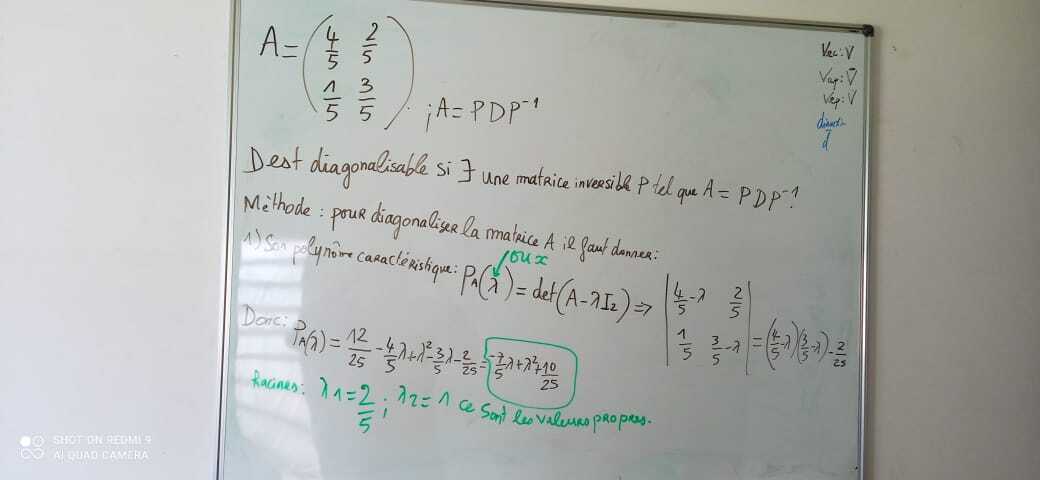 A = ( 4/5 2/5
1/5 3/5 ) . ; A = PDP⁻¹
Vec: V
Vap: V
Vep: V
D est diagonalisable si ∃ une matrice inversible P tel que A = PDP⁻¹!
Méthode : pour diagonaliser la matrice A il faut donner:
1) Son polynôme caractéristique: P_A(λ) = det(A - λI₂) => | 4/5 - λ 2/5
1/5 3/5 - λ | = (4/5 - λ)(3/5 - λ) - 2/25
ou x
Donc: P_A(λ) = 12/25 - 4/5 λ + λ² - 3/5 λ - 2/25 = -7/5 λ + λ² + 10/25
Racines: λ1 = 2/5 ; λ2 = 1 ce sont les valeurs propres.
SHOT ON REDMI 9
AI QUAD CAMERA